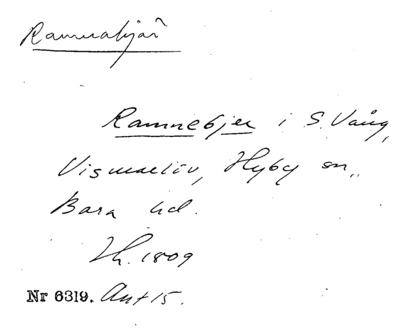 Ramnabjär
Ramnebjer i S. Vång,
Vismarlöv, Hyby sn.,
Bara hd.
Th. 1809
Nr 6319. Ant 15.